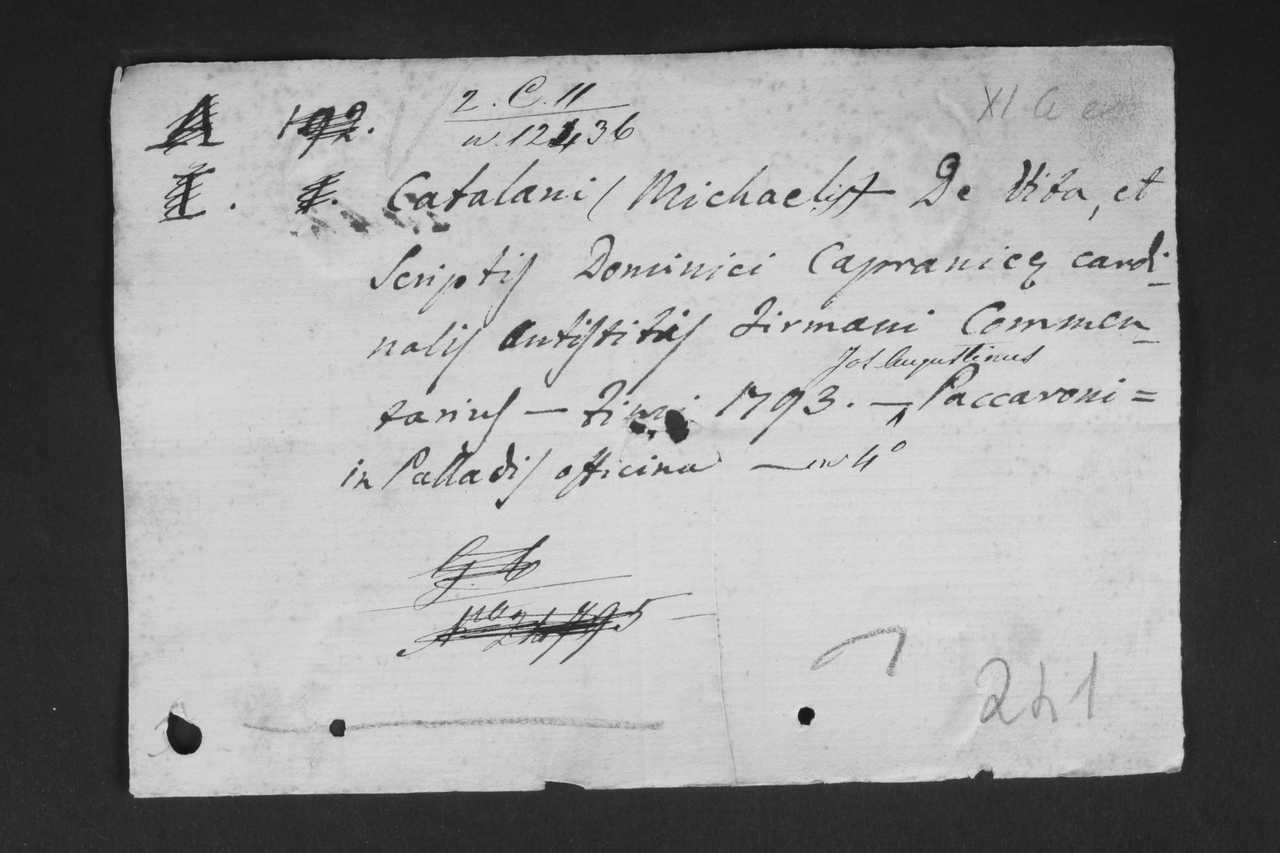 A 192. 2. C. 11
n. 12436
I. I. Catalani (Michaelis) De Vita, et
Scriptis Dominici Capranicę cardi-
nalis Antistitis Firmani Commen-
Jos Augustinus
tarius — Firmi 1793. — Paccaroni =
in Palladis officina — in 4°
241